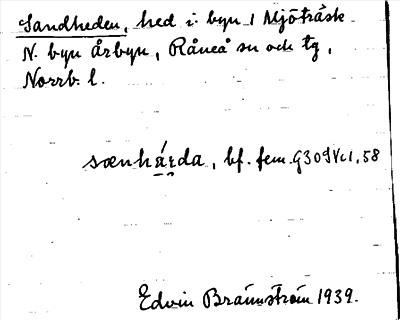 Sandheden, hed i byn 1 Mjöträsk
N. byn Årbyn, Råneå sn och tg,
Norrb. l.
sænhárda, bf. fem. G30 IVc1, 58
Edvin Brännström 1939.